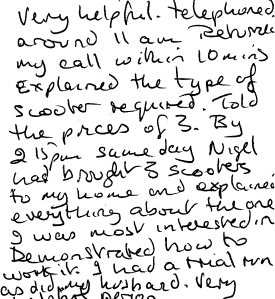 Very helpful. telephoned
around 11 am Returned
my call within 10 mins
Explained the type of
scooter required. Told
the prices of 3. By
2 15pm same day Nigel
had brought 3 scooters
to my home and explained
everything about the one
I was most interested in
Demonstrated how to
work it. I had a trial run
as did my husband. Very